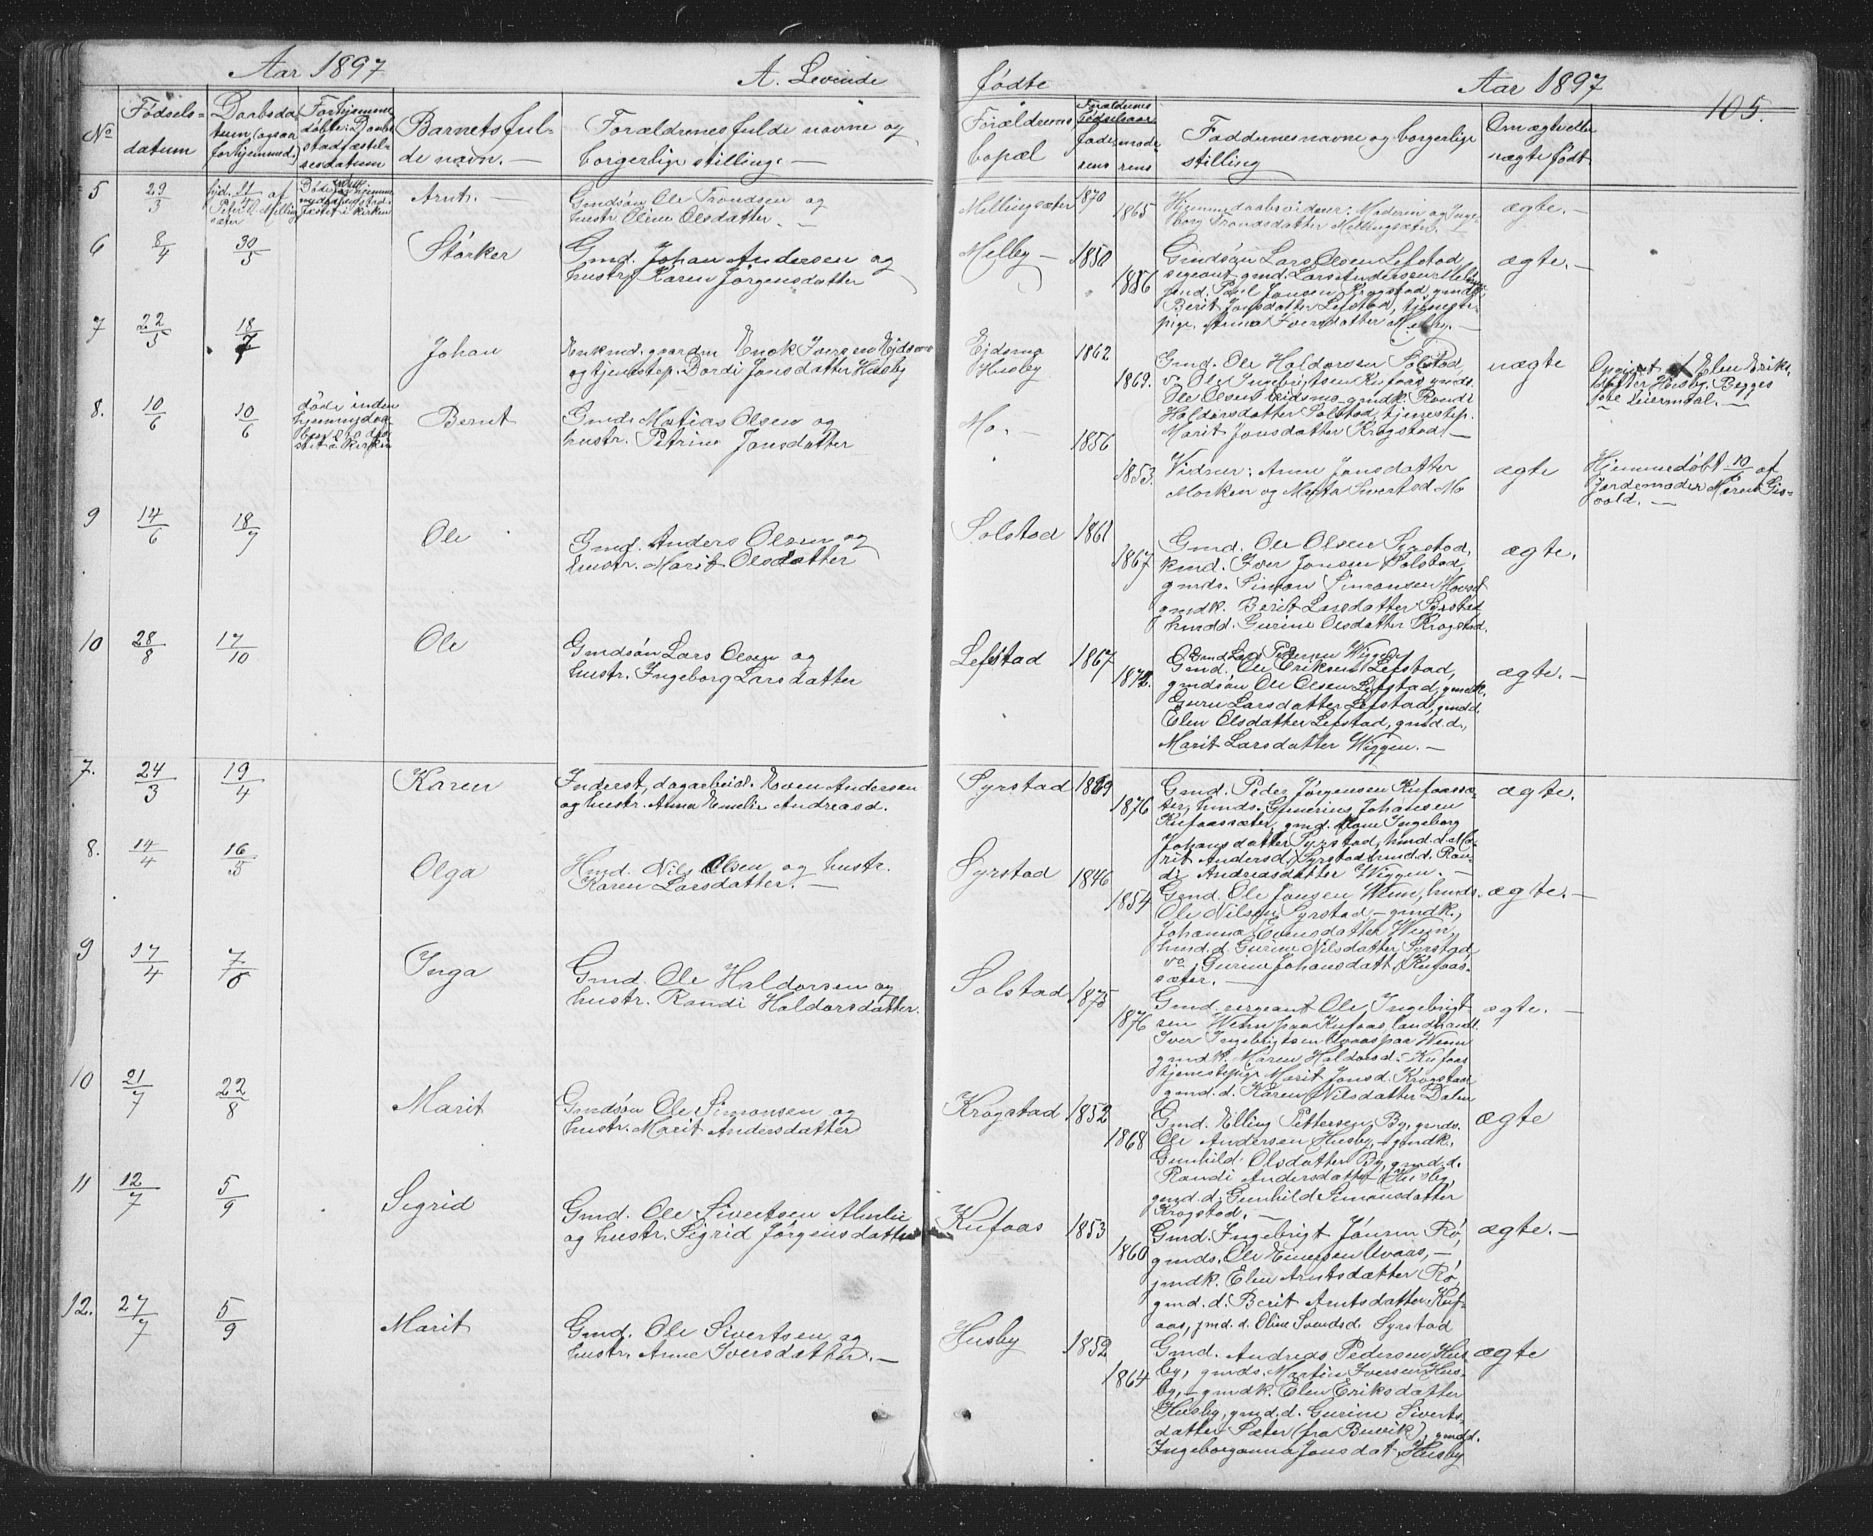 Aar 1897
A. Levende
No
Fødsels-
datum
Daabsda-
tum, (ogsaa
for hjemmed.)
Barnets ful-
de navn. —
Forældrenes fulde navne og
borgerlige stilling. —
5
29/3
Arnt. —
Gmdsøn Ole Trondsen og
hustr. Oline Olsdatter. —
6
8/4
30/5
Størker
Gmd. Johan Andersen og
hustr. Karen Jørgensdatter
7
22/5
18/7
Johan
Enok Iversen Eidsmo
og tjenestep. Dordi Jonsdatter Husby
8.
10/6
10/6
døde inden
Bernt
Gmd. Matias Olsen og
hustr. Petrine Jonsdatter
9
14/6
18/7
Ole
Gmd. Anders Olsen og
hustr. Marit Olsdatter
10
28/8
17/10
Ole
Gmdsøn Lars Olsen og
hustr. Ingeborg Larsdatter
7.
24/3
19/4
Karen
Inderst, dagarbeid. Even Andersen
og hustr. Anna Emelie Andreasd.
8.
14/4
16/5
Olga
Hmd. Nils Olsen og hustr.
Karen Larsdatter. —
9
17/4
7/6
Inga
Gmd. Ole Haldorsen og
hustr. Randi Haldorsdatter.
10
21/7
22/8
Marit
Gmdsøn Ole Simonsen og
hustr. Marit Andersdatter
11
12/7
5/9
Sigrid
Gmd. Ole Sivertsen Almlie
og hustr. Sigrid Jørgensdatter
12.
27/7
5/9
Marit
Gmd. Ole Sivertsen og
hustr. Anne Iversdatter. —
fødte
Aar 1897
105.
Forældrenes
bopæl
Forældrenes
fødselsaar
fade-
rens
mode-
rens
Faddernes navne og borgerlige
stilling
Om ægte eller
uægte født
Mellingsæter
1870
1865
Hjemmedaabsvidner: Moderen og Inge-
borg Trondsdatter Mellingsæter.
ægte. —
Melby —
1850
1856
Gmdsøn Lars Olsen Lefstad,
sergeant, gmd. Lars Andersen Melby,
gmd. Paul Jonsen Krogstad, gmdk.
Berit Jonsdatter Lefstad, tjeneste-
pige Anna Iversdatter Melby. —
ægte. —
Eidsmo
Husby
1862
1869.
Gmd. Ole Haldorsen Solstad,
do. Ole Ingebrigtsen Kufaas, gmds.
Ole Olsen Eidsmo, gmdk. Randi
Haldorsdatter Solstad, tjenestep.
Marit Jonsdatter Krogstad. —
uægte
Opgivet af Elen Eriks-
datter Husby. Begges
Leiermaal. —
Mo. —
1856
1853.
Vidner: Anne Jonsdatter
Morken og Marta Sivertsd. Mo
ægte
Hjemmedøbt 10/6 af
Jordemoder Maren Gis-
vold. —
Solstad
1861
1867
Gmd. Ole Olsen Syrstad,
kmd. Iver Jonsen Solstad,
gmds. Simon Simonsen Hovst
gmdk. Berit Larsdatter Syrstad
hmdd. Gurine Olsdatter Krogstad.
ægte.
Lefstad
1867
1872.
Gmd. Lars Pedersen Wiggen,
Gmd. Ole Eriksen Lefstad,
gmdsøn Ole Olsen Lefstad, gmdk.
Guru Larsdatter Lefstad, gmdd.
Elen Olsdatter Lefstad, gmd.d.
Marit Larsdatter Wiggen. —
ægte. —
Syrstad
1869
1876
Gmd. Peder Jørgensen Kufaassæ-
ter, hmds. Gunerius Johansen
Kufaassæter, gmd. kone Ingeborg
Johansdatter Syrstad, hmd.d. Ma-
rit Andersd. Syrstad, hmd.d. Ran-
di Andreasdatter Wiggen. —
ægte.
Syrstad
1846
1854
Gmd. Ole Jonsen Wenn, hmds.
Ole Nilsen Syrstad, — gmdk.
Johanna Evensdatter Wenn,
hmd.d. Gurine Nilsdatter Syrstad
do. Gurine Johansdatt. Kufaas-
sæter. —
ægte. —
Solstad
1875
1876
Gmd. sergeant Ole Ingebrigt-
sen Wenn paa Kufaas, landhandl.
Iver Ingebrigtsen Avaas paa Wenn
gmdk. Maren Haldorsd. Kufaas
tjenestepige Marit Jonsd. Krogstad
gmd.d. Karen Nilsdatter Dalen
ægte. —
Krogstad
1852
1868
Gmd. Elling Pettersen By, gmds.
Ole Andersen Husby, — gmdk.
Gunhild Olsdatter By, gmd.d.
Randi Andersdatter Husby,
gmd.d. Gunhild Simonsdatter
Krogstad. —
ægte
Kufaas
1853
1860
Gmd. Ingebrigt Jonsen Rø,
gmds. Ole Einersen Avaas, —
gmdk. Elen Arntsdatter Rø,
gmd.d. Berit Arntsdatter Kuf-
aas, gmd.d. Oline Svendsd. Syrstad
ægte. —
Husby
1852
1864
Gmd. Andreas Pedersen Hus-
by, gmds. Martin Iversen Hus-
by, — gmdk. Elen Eriksdatter
Husby, gmd.d. Gurine Siverts-
datter Sæter (fra Buvik), gmdd.
Ingeborganna Jonsdat. Husby
ægte